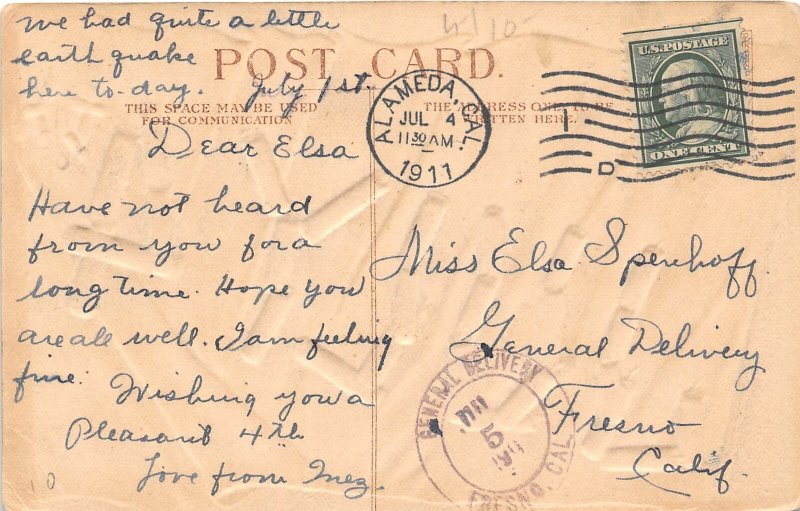 we had quite a little
earth quake
here to-day. July 1st
4/10
POST CARD.
THIS SPACE MAY BE USED
FOR COMMUNICATION
THE ADDRESS ONLY TO BE
WRITTEN HERE.
ALAMEDA, CAL.
JUL 4
11 30 AM
1911
1
D
U.S. POSTAGE
ONE CENT
Dear Elsa
Have not heard
from you for a
long time. Hope you
are all well. I am feeling
fine. Wishing you a
Pleasant 4th
Love from Inez.
10
Miss Elsa Spenhoff.
General Delivery
Fresno
Calif.
GENERAL DELIVERY
JUL
5
1911
FRESNO, CAL.